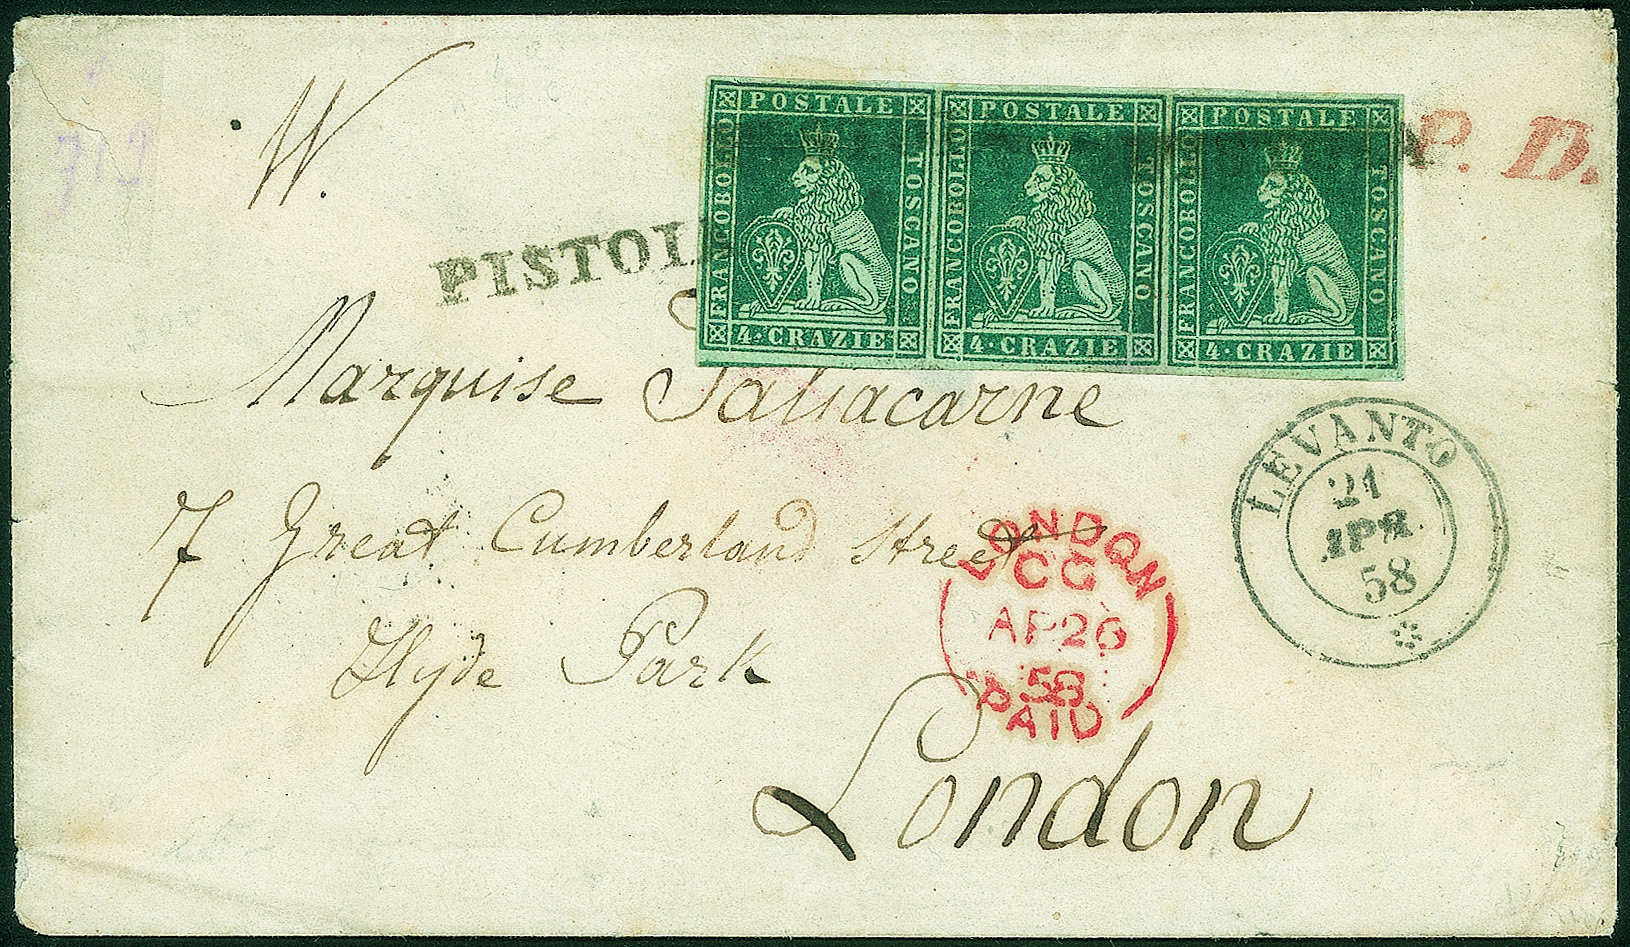 W.
712
POSTALE
FRANCOBOLLO
TOSCANO
4·CRAZIE
POSTALE
FRANCOBOLLO
TOSCANO
4·CRAZIE
POSTALE
FRANCOBOLLO
TOSCANO
4·CRAZIE
P. D.
PISTOIA
Marquise Saliacarne
7 Great Cumberland Street
Hyde Park
London
LEVANTO
21
APR
58
LONDON
CG
AP26
58
PAID